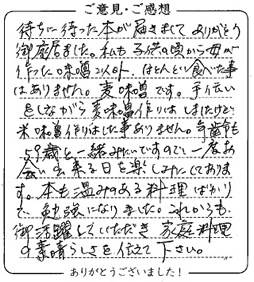 ご意見・ご感想
待ちに待った本が届きまして ありがとう
御座居ました。私も子供の頃から母が
作った味噌以外、ほとんど食べた事
はありません。麦味噌です。手伝い
をしながら麦味噌作りはしましたけど
米味噌作りはした事ありません。年齢も
59歳と一緒みたいですので、一度お
会い出来る日を楽しみにしておりま
す。本も温みのある料理ばかり
で、勉強になりました。これからも、
御活躍していただき 家庭料理
の素晴らしさを伝えて下さい。
ありがとうございました!